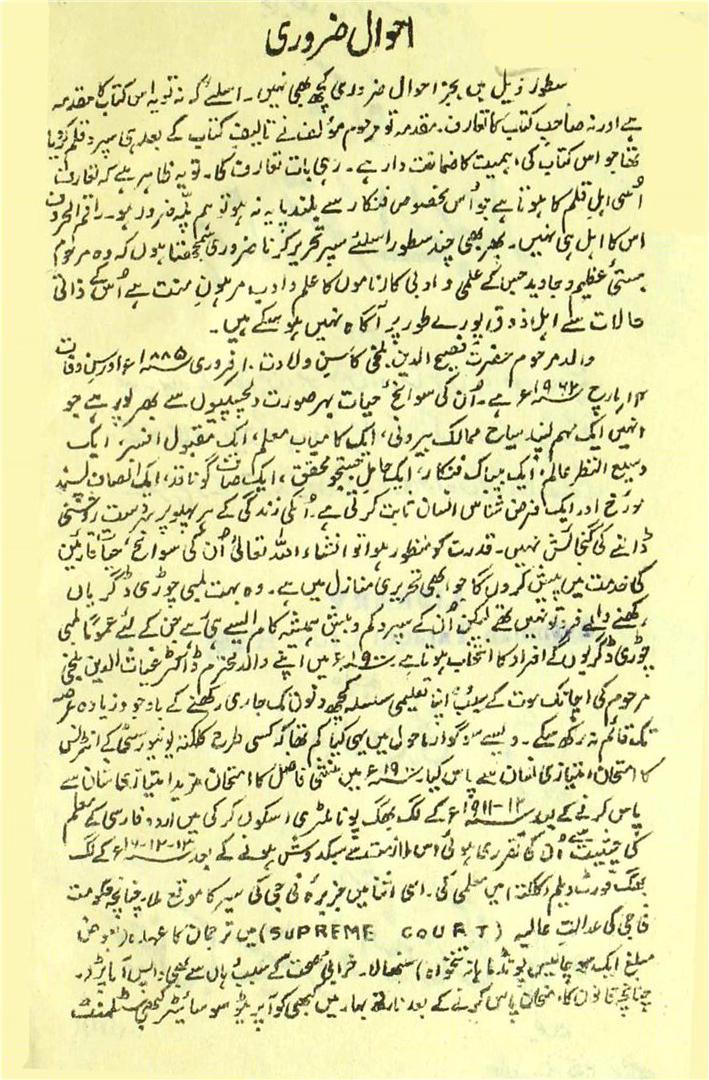 احوال ضروری
سطور زیل میں بجز احوال ضروری کچھ بھی نہیں۔ اسلئے کہ نہ تو یہ اس کتاب کا مقدمہ
ہے اور نہ صاحبِ کتاب کا تعارف۔ مقدمہ تو مرحوم مؤلف نے تالیفِ کتاب کے بعد ہی سپرد قلم کردیا
تھا جو اس کتاب کی اہمیت کا ضمانت دار ہے۔ رہی بات تعارف کا۔ تو یہ ظاہر ہے کہ تعارف
اُسی اہل قلم کا ہوتا ہے جو اُس مخصوص فنکار سے بلند پایہ نہ ہو تو ہم پلّہ ضرور ہو۔ راقم الحروف
اس کا اہل ہی نہیں۔ پھر بھی چند سطور اسلئے سپرد تحریر کرنا ضروری سمجھتا ہوں کہ وہ مرحوم
ہستیٔ عظیم و جاوید جس کے علمی و ادبی کارناموں کا علم و ادب مرہونِ منت ہے اُس کے ذاتی
حالات سے اہل ذوق پورے طور پر آگاہ نہیں ہو سکے ہیں۔
والد مرحوم حضرت فصیح الدین بلخی کا سنِ ولادت ۱۰ فروری ۱۸۸۵ء اور سنِ وفات
مارچ ۱۹۶۲ء ہے۔ اُن کی سوانح حیات بہر صورت دلچسپیوں سے بھرپور ہے جو
انھیں ایک مہم پسند سیاح ممالک بیرونی، ایک کامیاب معلم، ایک مقبول افسر، ایک
وسیع النظر عالم، ایک بیباک فنکار، ایک حاملِ جستجو محقق، ایک صاف گو ناقد، ایک انصاف پسند
مورخ اور ایک فرض شناس انسان ثابت کرتی ہے۔ اُنکی زندگی کے ہر پہلو پر سردست روشنی
ڈالنے کی گنجائش نہیں۔ قدرت کو منظور ہوا تو انشاء اللہ تعالیٰ اُن کی سوانح حیات قارئین
کی خدمت میں پیش کروں گا جو ابھی تحریری منازل میں ہے۔ وہ بہت لمبی چوڑی ڈگریاں
رکھنے والے فرد تو نہیں تھے لیکن اُن کے سپرد کم و بیش ہمیشہ کام ایسے ہی آئے جن کے لئے عموماً لمبی
چوڑی ڈگریوں کے افراد کا انتخاب ہوتا ہے۔ میں اپنے والد محترم ڈاکٹر غیاث الدین بلخی
مرحوم کی اچانک موت کے سبب اپنا تعلیمی سلسلہ کچھ دنوں تک جاری رکھنے کے باوجود زیادہ عرصہ
تک قائم نہ رکھ سکے۔ ویسے سوگوار ماحول میں یہی کیا کم تھا کہ کسی طرح کلکتہ یونیورسٹی کے انٹرنس
کا امتحان امتیازی شان سے پاس کیا۔ میں منشی فاضل کا امتحان مزید امتیازی شان سے
پاس کرنے کے بعد ۱۲-۱۹۱۱ء کے لگ بھگ پونا ملٹری اسکول کرکی میں اردو فارسی کے معلم
کی حیثیت سے اُن کی تقرری ہوئی اس ملازمت سے سبکدوش ہونے کے بعد کے لگ
بھگ فورٹ ولیم (کلکتہ) میں معلمی کی۔ اسی اثنا میں جزیرہ فی جی کی سیر کا موقع ملا۔ چنانچہ حکومت
فاجی کی عدالتِ عالیہ (SUPREME COURT) میں ترجمان کا عہدہ (بعوض
مبلغ ایک سو چالیس پونڈ ماہانہ تنخواہ) سنبھالا۔ خرابیٔ صحت کے سبب وہاں سے بھی واپس آنا پڑا۔
چنانچہ قانون کا امتحان پاس کرنے کے بعد نارتھ بہار میں کبھی کوآپریٹو سوسائیٹز کبھی سٹلمنٹ